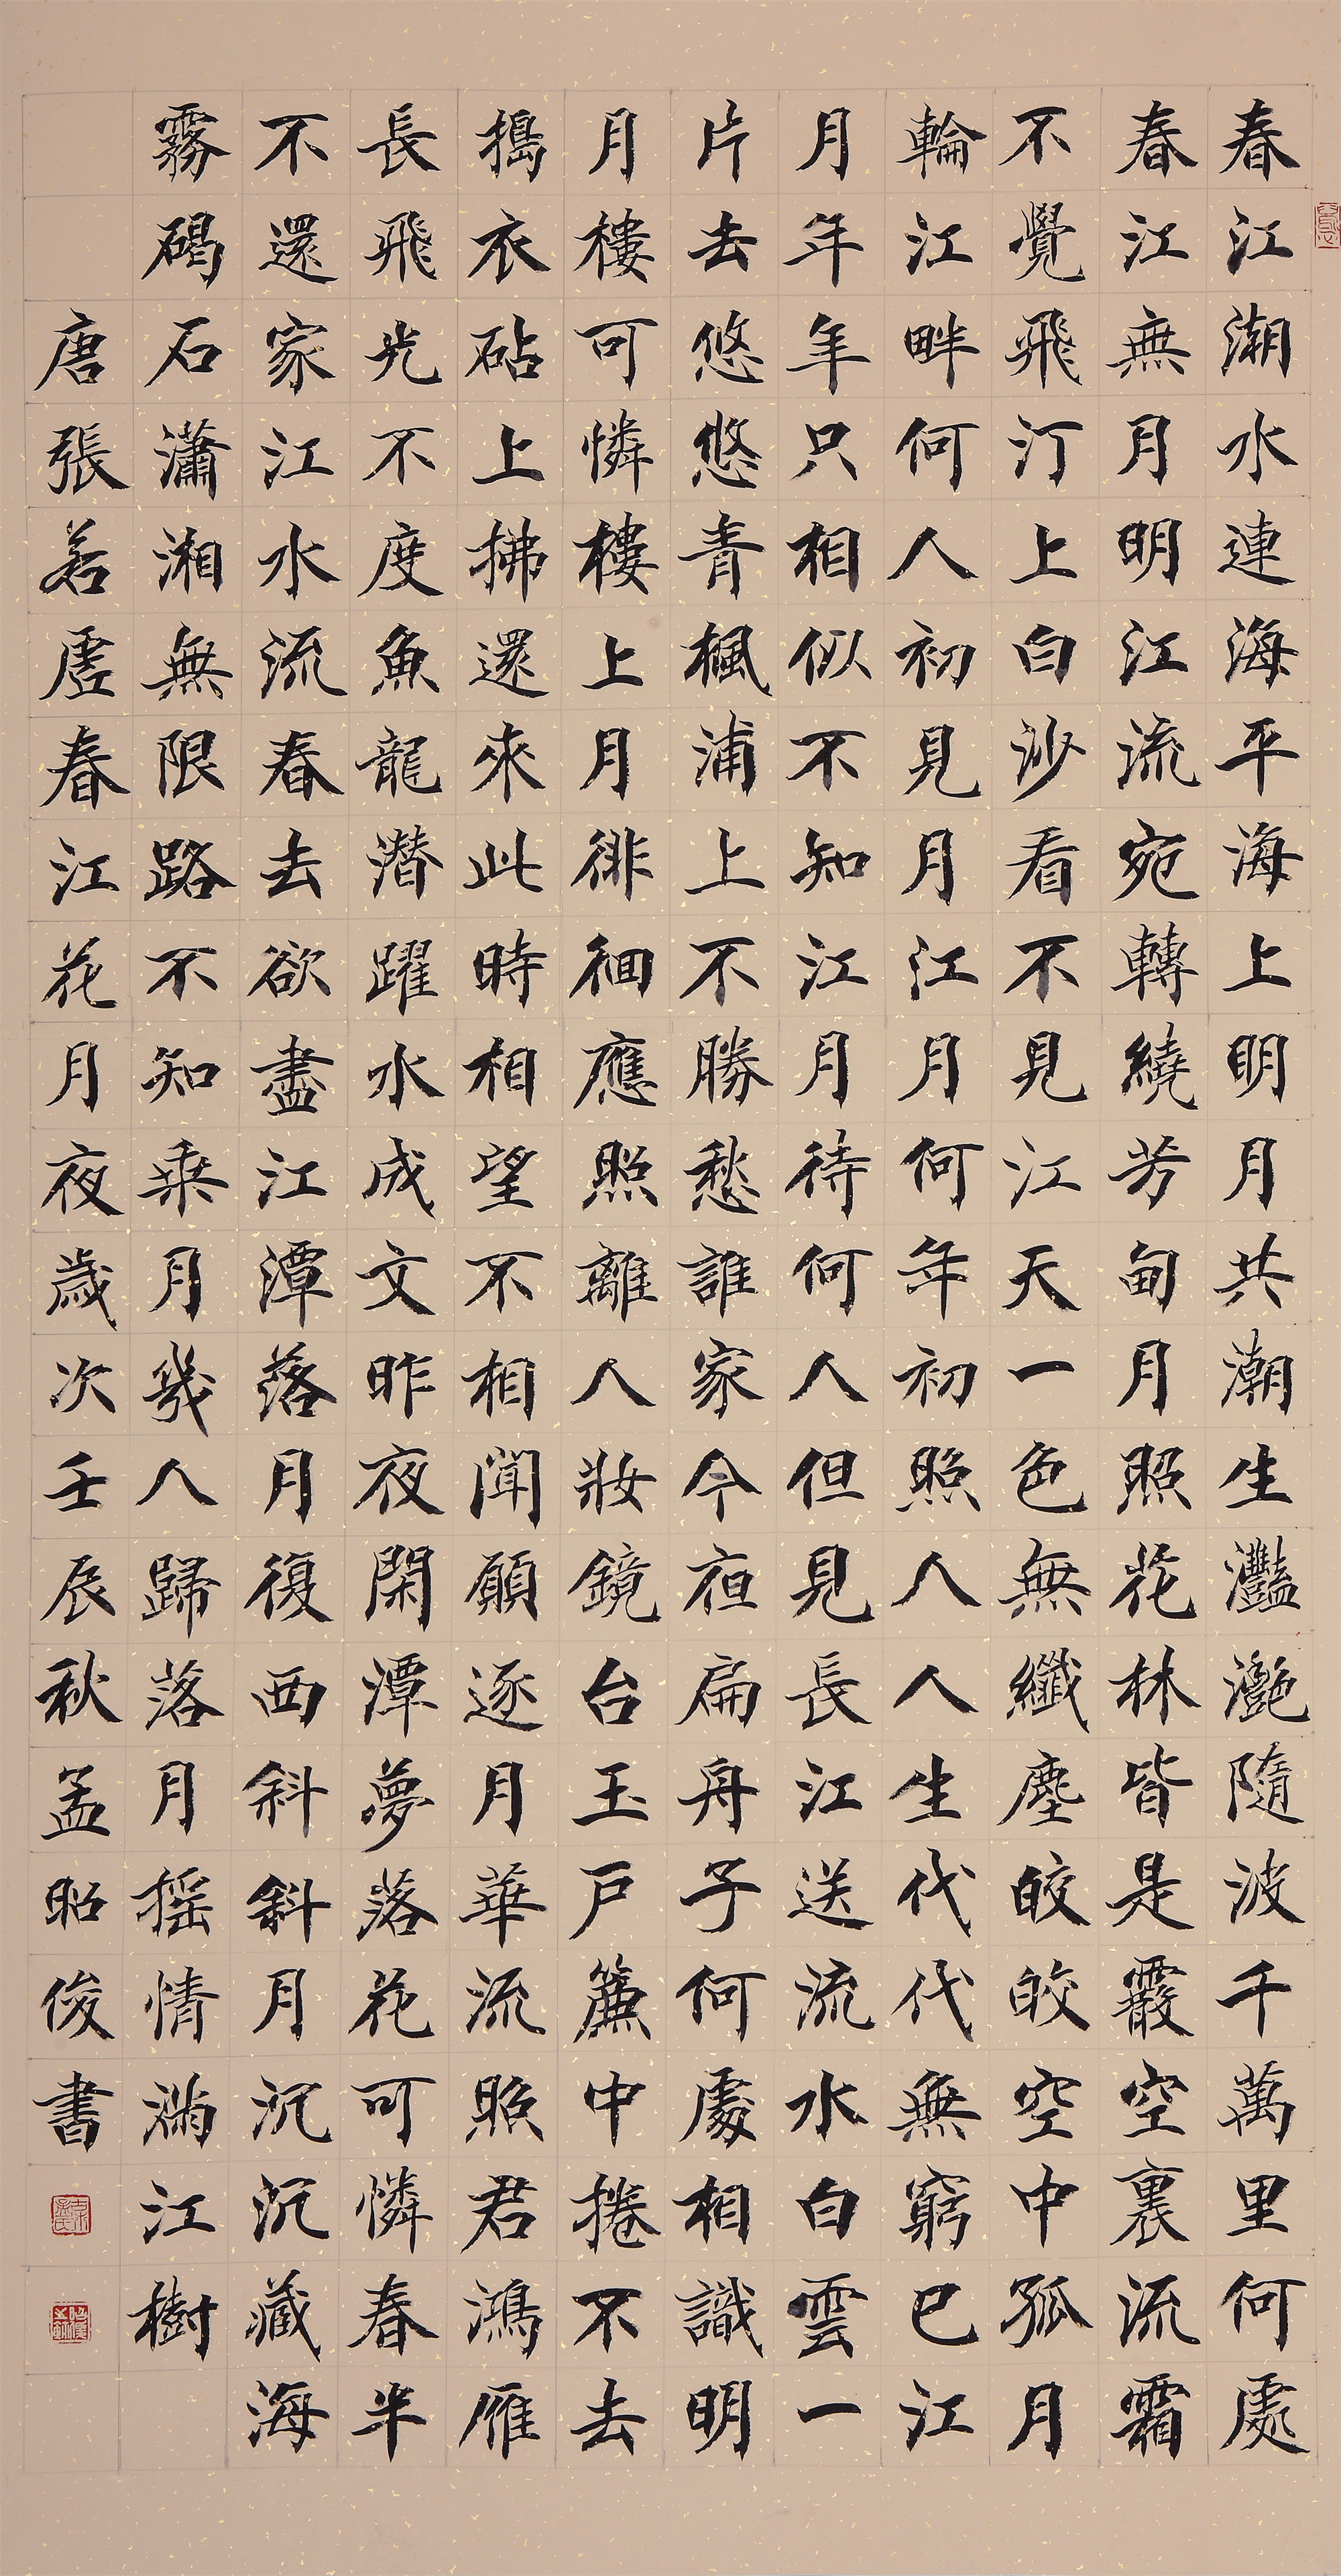 春江潮水連海平海上明月共潮生灩灧隨波千萬里何處
春江無月明江流宛轉繞芳甸月照花林皆是霰空裏流霜
不覺飛汀上白沙看不見江天一色無纖塵皎皎空中孤月
輪江畔何人初見月江月何年初照人人生代代無窮已江
月年年只相似不知江月待何人但見長江送流水白雲一
片去悠悠青楓浦上不勝愁誰家今夜扁舟子何處相識明
月樓可憐樓上月徘徊應照離人妝鏡台玉戶簾中捲不去
搗衣砧上拂還來此時相望不相聞願逐月華流照君鴻雁
長飛光不度魚龍潛躍水成文昨夜閑潭夢落花可憐春半
不還家江水流春去欲盡江潭落月復西斜斜月沉沉藏海
霧碣石瀟湘無限路不知乘月幾人歸落月搖情滿江樹
唐張若虛春江花月夜歲次壬辰秋孟昭俊書